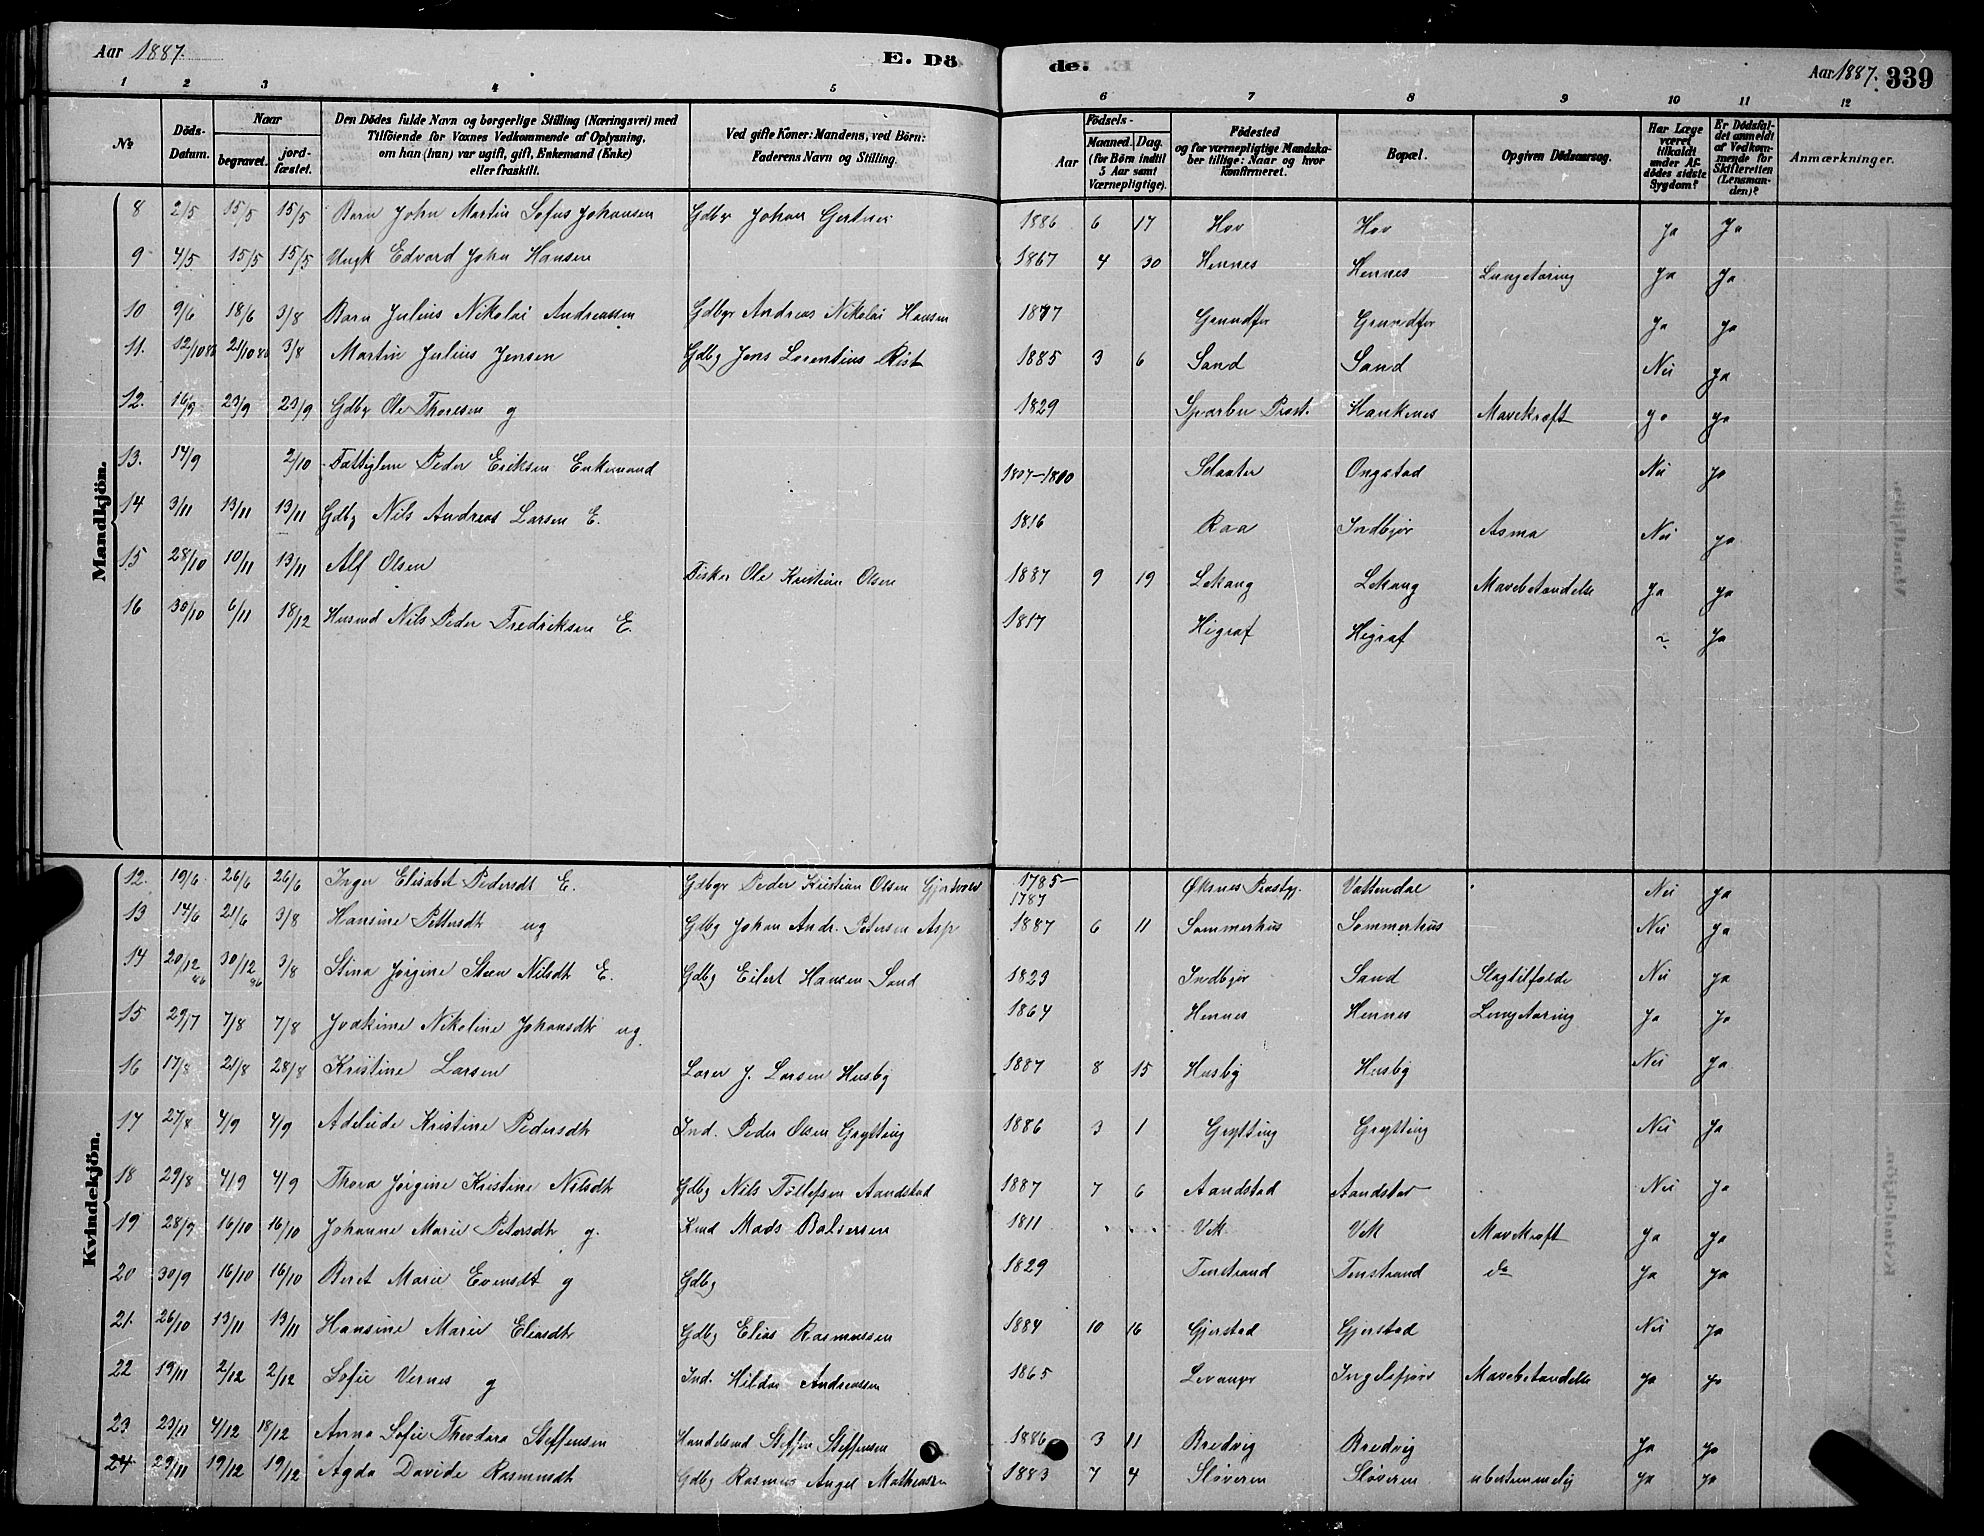 Aar 1887. E. Dö de. Aar 1887. 339
1 2 3 4 5 6 7 8 9 10 11 12
No Döds-Datum. Naar begravet. jord-fæstet. Den Dödes fulde Navn og borgerlige Stilling (Næringsvei) med Tilföiende for Voxnes Vedkommende af Oplysning, om han (hun) var ugift, gift, Enkemand (Enke) eller fraskilt. Ved gifte Koner: Mandens, ved Börn: Faderens Navn og Stilling. Födsels- Aar Maaned. Dag. (for Börn indtil 5 Aar samt Værnepligtige). Födested og for værnepligtige Mandska-ber tillige: Naar og hvor konfirmeret. Bopæl. Opgiven Dödsaarsag. Har Læge været tilkaldt under Af-dödes sidste Sygdom? Er Dödsfal-det anmeldt af Vedkom-mende for Skifteretten (Lensman-den)? Anmærkninger.
Mandkjön.
8 2/5 15/5 15/5 Barn John Martin Sofus Johansen Gdbr Johan 1886 6 17 Hov Hov Ja Ja
9 4/5 15/5 15/5 Ungk Edvard John Hansen 1867 4 30 Hennes Hennes Lungetæring Ja Ja
10 9/6 18/6 3/8 Barn Julius Nikolai Andreassen Gdbgr Andreas Nikolai Hansen Grundfør Grundfør Ja Ja
11. 12/10 86 21/10 86 3/8 Martin Julius Jensen Gdbg Jens Lorentius Rist 1885 3 6 Sand Sand Nei Ja
12. 16/9 23/9 23/9 Gdbr Ole Thoresen g 1829 Sparbu Præst. Haukenes Mavekræft Ja Ja
13. 14/9 2/10 Fattiglem Peder Eriksen Enkemand Slaater Ongstad Nei Ja
14 3/11 13/11 13/11 Gdbg Nils Andreas Larsen E. 1816 Raa Indbjør Asma Nei Ja
15 28/10 10/11 13/11 Alf Olsen Fisker Ole Kristian Olsen 1887 9 19 Lekang Lekang Mavebetændelse Ja Ja
16 30/10 6/11 18/12 Husmd Nils Peder Fredriksen E. 1817 Higraf Higraf Ja
Kvindekjön.
12. 19/6 26/6 26/6 Inger Elisabet Pedersdt E. Gdbgr Peder Kristian Olsen 1785-1787 Øksnes Præstgj. Vattendal Nei Ja
13 14/6 21/6 3/8 Hansine Pettersdt ug Gdbg Johan Andr. Petersen Asp 1887 6 11 Sommerhus Sommerhus Nei Ja
14 20/12 86 30/12 86 3/8 Stina Jørgine Steen Nilsdt E. Gdbg Eilert Hansen Sand 1823 Indbjør Sand Slagtilfælde Nei Ja
15 29/7 7/8 7/8 Joakime Nikoline Johansdt ug 1864 Hennes Hennes Lungetæring Ja Ja
16 17/8 21/8 28/8 Kristine Larsen J. Larsen Husby 1887 8 15 Husby Husby Nei Ja
17 27/8 4/9 4/9 Adeleide Kristine Pedersdt Ind. Peder Olsen Grytting 1886 3 1 Grytting Grytting Nei Ja
18 29/8 4/9 4/9 Thora Jørgine Kristine Nilsdt Gdbg Nils Tollefsen Aandstad 1887 7 6 Aandstad Aandstad Nei Ja
19 28/9 16/10 16/10 Johanne Marie Petersdt g. Mads Baltzersen 1811 Vik Vik Mavekræft Ja Ja
20 30/9 16/10 16/10 Beret Marie Evensdt g Gdbg 1829 Finstrand Finstrand do Ja Ja
21. 26/10 13/11 13/11 Hansine Marie Eliasdt Gdbg Elias Rasmussen 1884 10 16 Gjerstad Gjerstad Nei Ja
22 19/11 2/12 2/12 Sofie Vernes g Ind. Hildor Andreassen 1865 Levanger Ingelsfjord Mavebetændelse Ja Ja
23 23/11 4/12 18/12 Anna Sofie Theodora Steffensen Handelsmd Steffen Steffensen 1886 3 11 Bredvig Bredvig Ja Ja
24 29/11 19/12 19/12 Agda Davide Rasmusdt Gdbg Rasmus Angel Mathiesen 1883 7 4 Sløveren Sløveren ubestemmelig Ja Ja